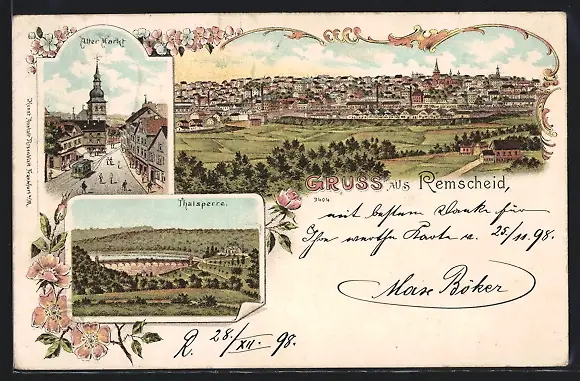 Alter Markt
Thalsperre.
GRUSS AUS Remscheid,
3404
mit bestem Danke für
Ihre werthe Karte v. 25/11.98.
Max Böker
R. 28./XII. 98.